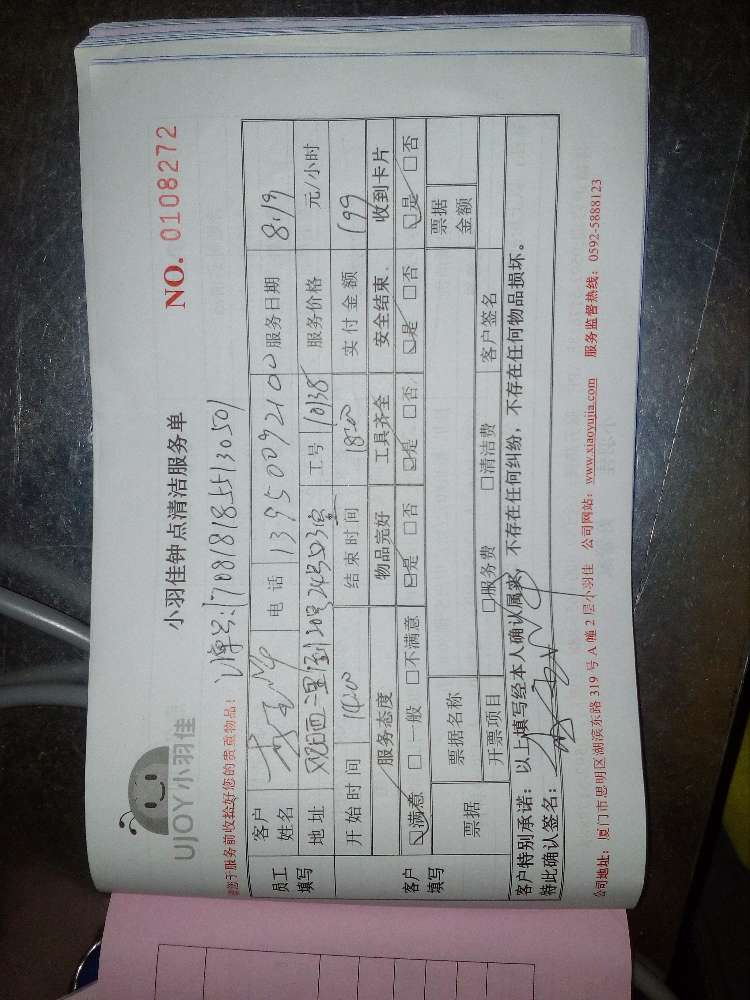 UJOY小羽佳
小羽佳钟点清洁服务单
NO. 0108272
请您于服务前收捡好您的贵重物品!
订单号:1708181855130501
员工填写
客户姓名
电话 13950092100
服务日期 8.19
地址
工号 10138
服务价格 元/小时
开始时间 14:00
结束时间 18:00
实付金额 199
客户填写
服务态度 物品完好 工具齐全 安全结束 收到卡片
☑满意 □一般 □不满意 ☑是 □否 ☑是 □否 ☑是 □否 ☑是 □否
票据 票据名称 票据金额
开票项目 □服务费 □清洁费 客户签名
客户特别承诺:以上填写经本人确认属实,不存在任何纠纷,不存在任何物品损坏。
特此确认签名:
公司地址:厦门市思明区湖滨东路319号A幢2层小羽佳 公司网站:www.xiaoyujia.com 服务监督热线:0592-5888123